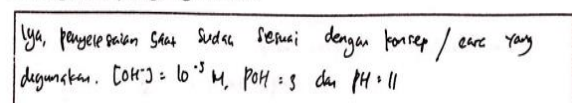 Iya, penyelesaian saat sudah sesuai dengan konsep / cara yang
digunakan. [OH⁻] = 10⁻³ M, pOH = 3 dan pH = 11